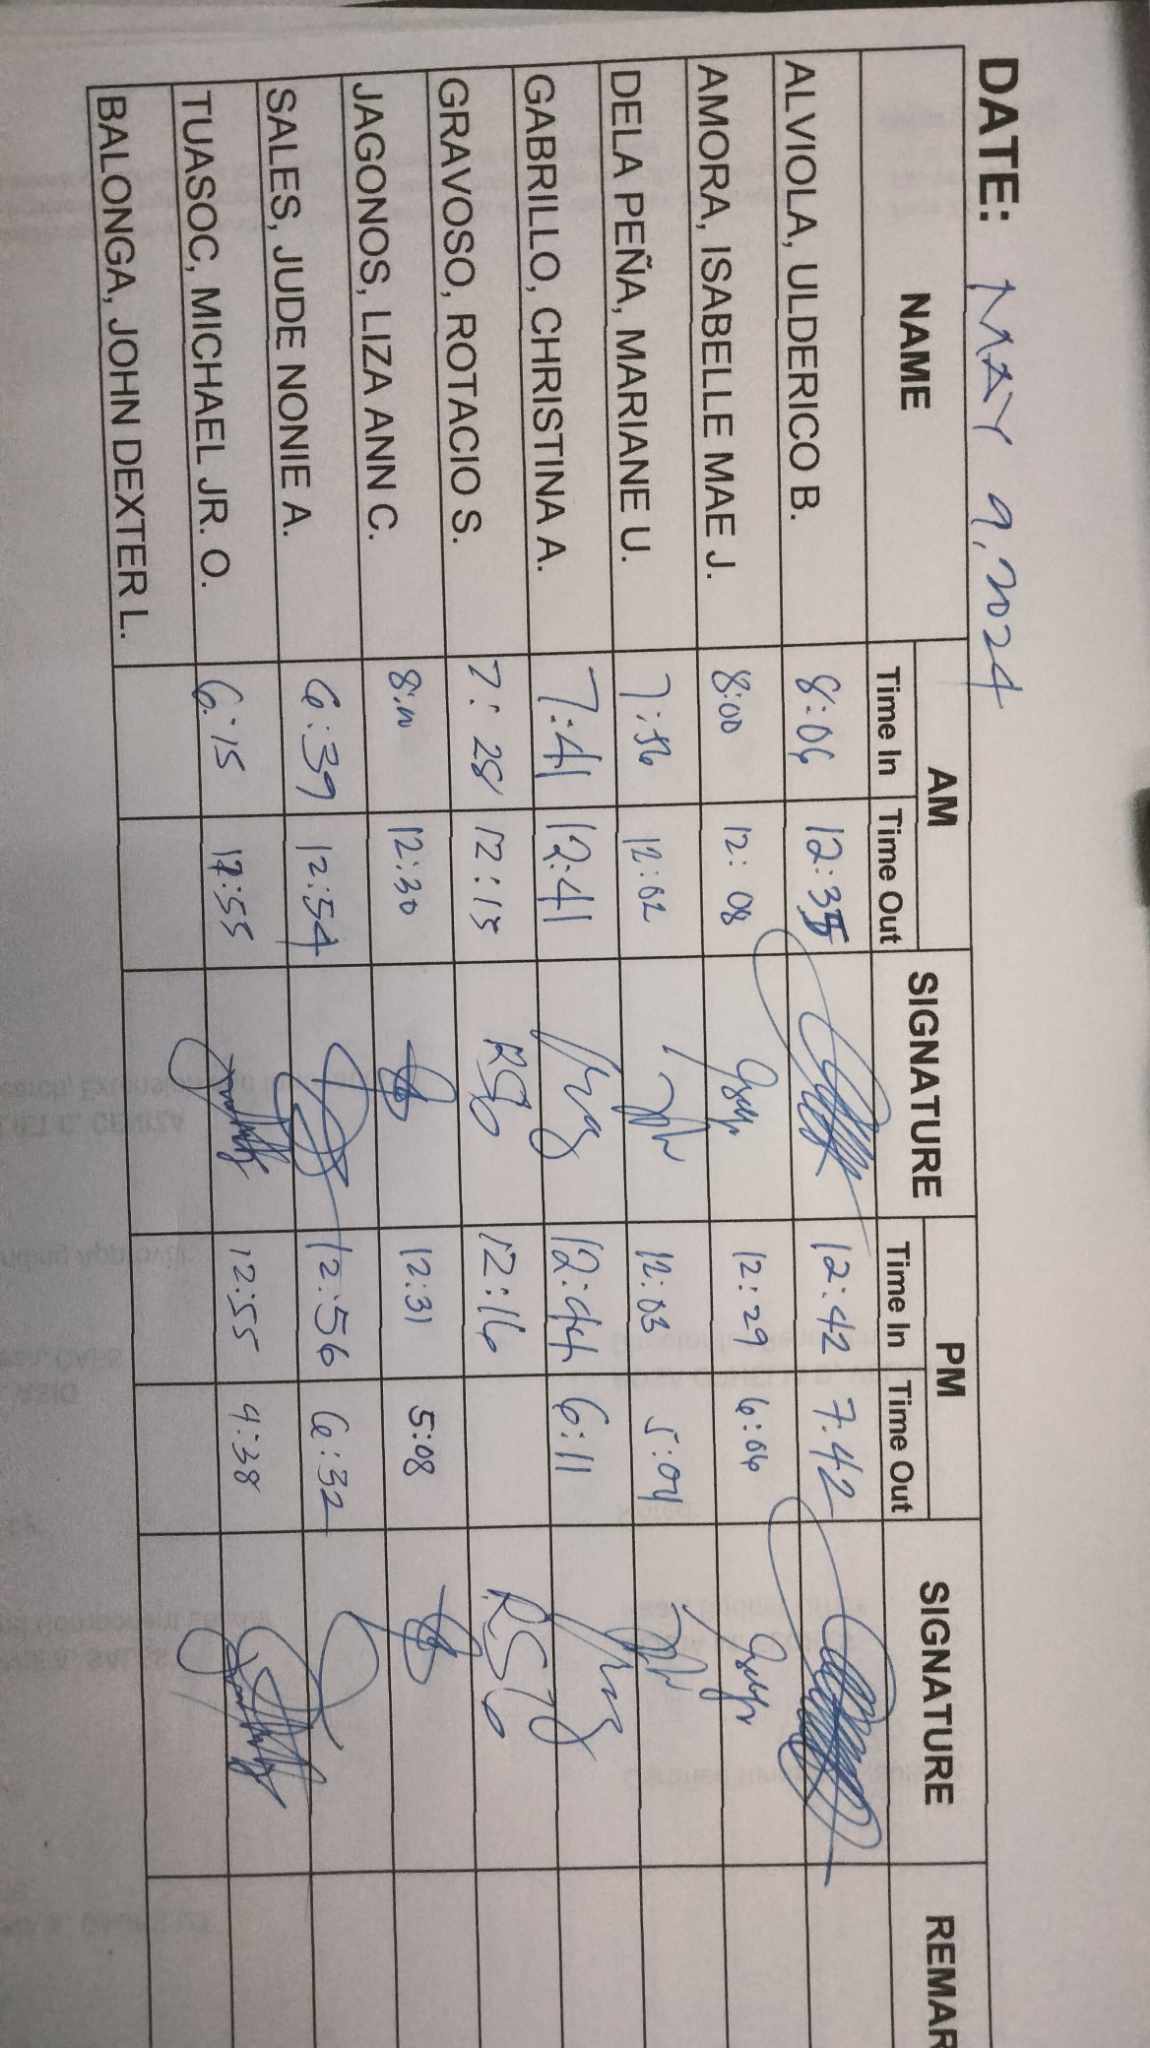 DATE: MAY 9, 2024
NAME AM SIGNATURE PM SIGNATURE REMAR
Time In Time Out Time In Time Out
ALVIOLA, ULDERICO B. 8:06 12:35 12:42 7:42
AMORA, ISABELLE MAE J. 8:00 12:08 12:29 6:06
DELA PEÑA, MARIANE U. 7:56 12:02 12:03 5:04
GABRILLO, CHRISTINA A. 7:41 12:41 12:44 6:11
GRAVOSO, ROTACIO S. 7:28 12:15 12:16
JAGONOS, LIZA ANN C. 8:00 12:30 12:31 5:08
SALES, JUDE NONIE A. 6:39 12:54 12:56 6:32
TUASOC, MICHAEL JR. O. 6:15 12:55 12:55 4:38
BALONGA, JOHN DEXTER L.